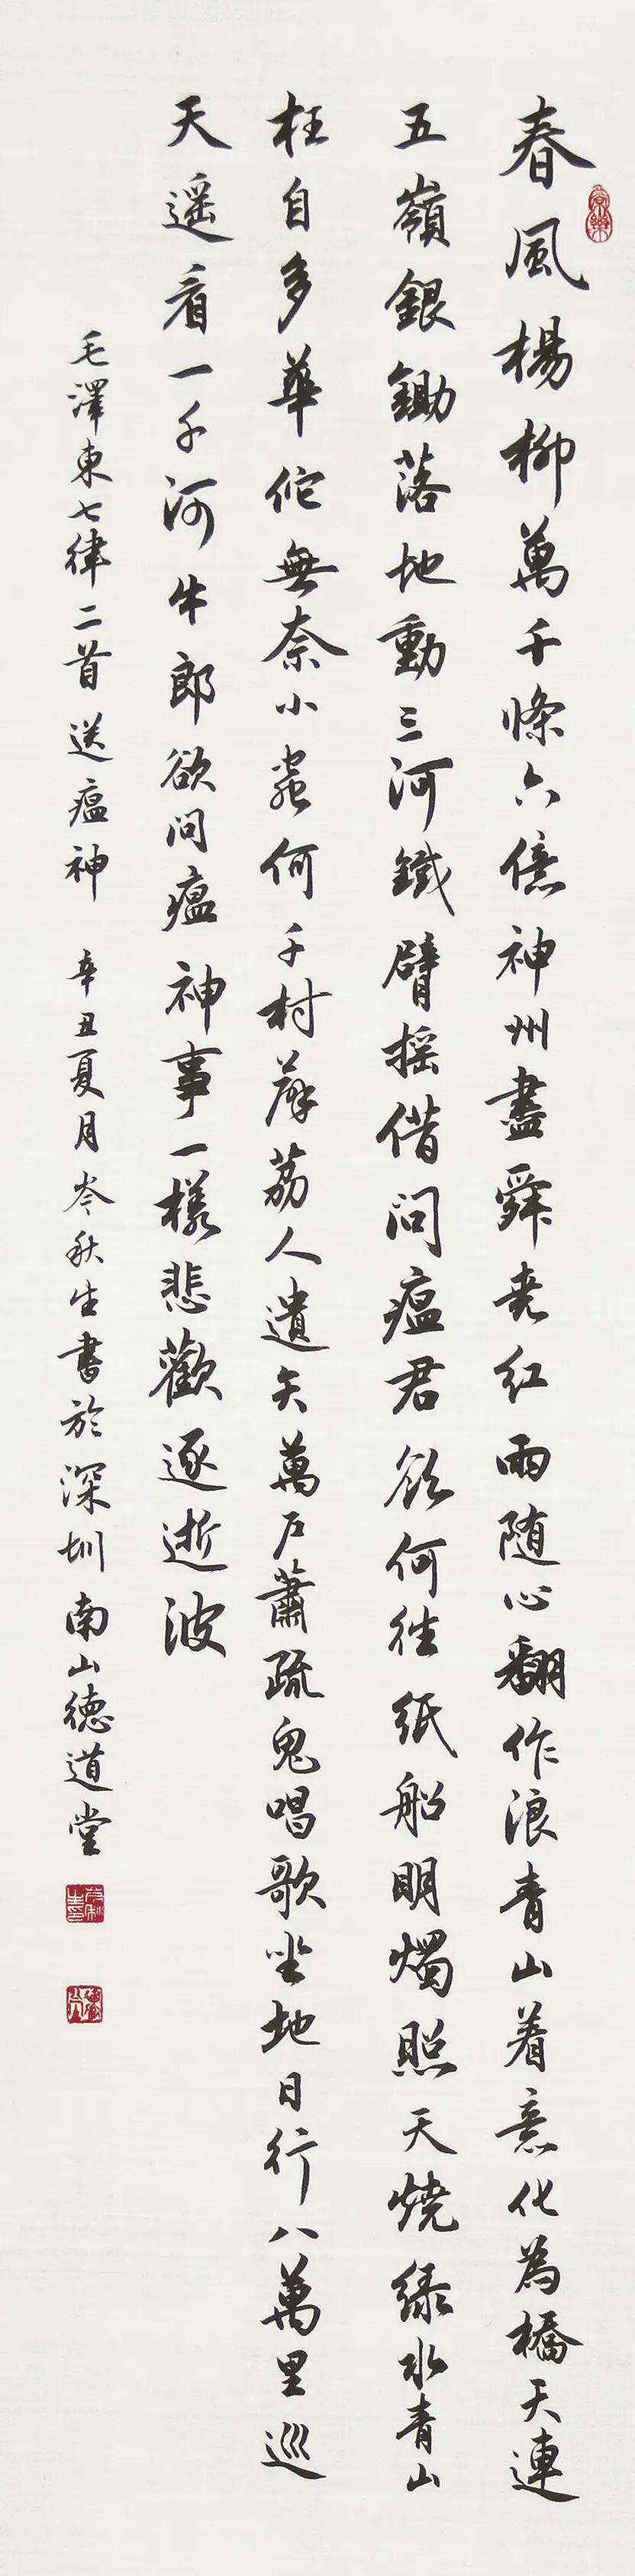 春風楊柳萬千條六億神州盡舜堯紅雨随心翻作浪青山着意化為橋天連
五嶺銀鋤落地動三河鐵臂摇借問瘟君欲何往纸船明燭照天燒緑水青山
枉自多華佗無奈小蟲何千村薜荔人遺矢萬户蕭疏鬼唱歌坐地日行八萬里巡
天遥看一千河牛郎欲問瘟神事一樣悲歡逐逝波
毛澤東七律二首送瘟神 辛丑夏月岑秋生書於深圳南山德道堂